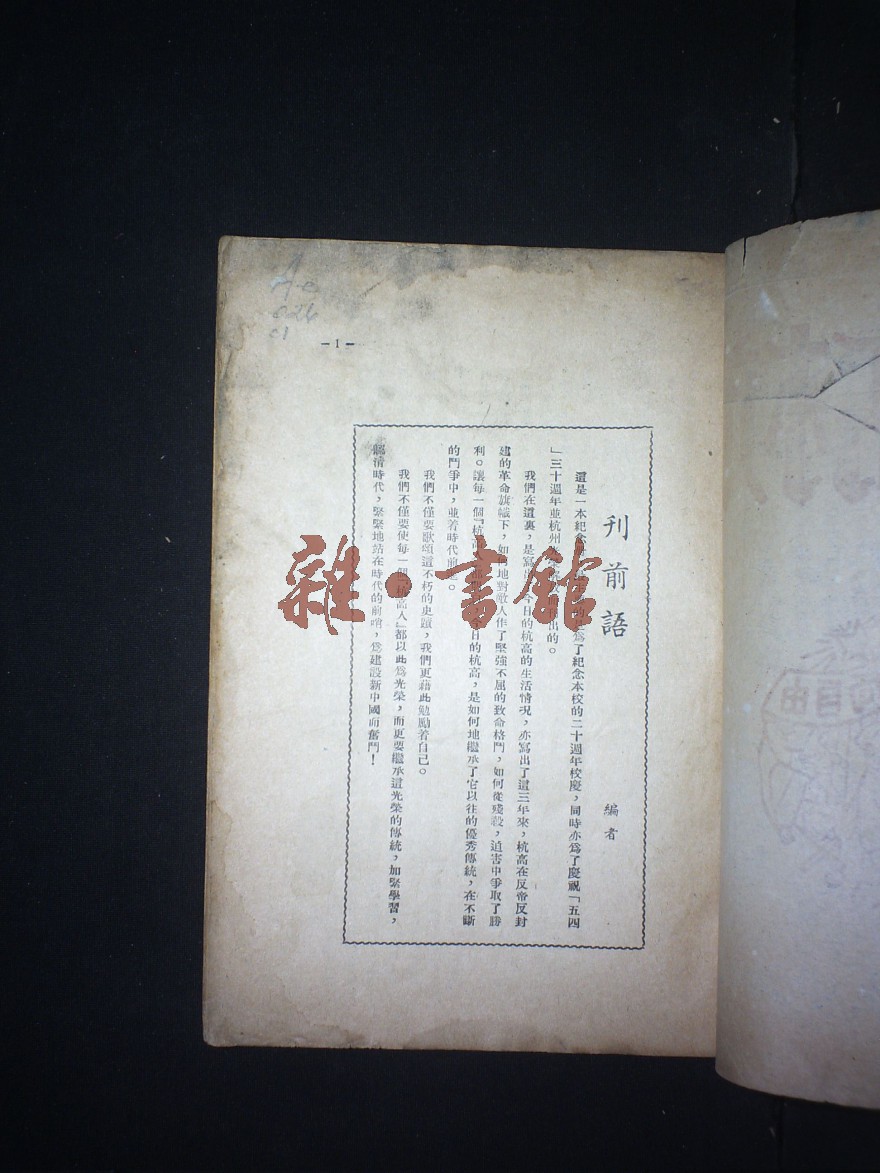 Ae
026
c1
－1－
刊前語
編者
這是一本紀念 爲了紀念本校的二十週年校慶，同時亦爲了慶祝「五四
」三十週年並杭州 出的。
我們在這裏，是寫出 今日的杭高的生活情況，亦寫出了這三年來，杭高在反帝反封
建的革命旗幟下，如何地對敵人作了堅強不屈的致命格鬥，如何從殘殺，迫害中爭取了勝
利。讓每一個「杭高 今日的杭高，是如何地繼承了它以往的優秀傳統，在不斷
的鬥爭中，並着時代前進。
我們不僅要歌頌這不朽的史蹟，我們更藉此勉勵着自己。
我們不僅要使每一個「杭高人」都以此爲光榮，而更要繼承這光榮的傳統，加緊學習，
認清時代，緊緊地站在時代的前哨，爲建設新中國而奮鬥！
雜·書館
自由